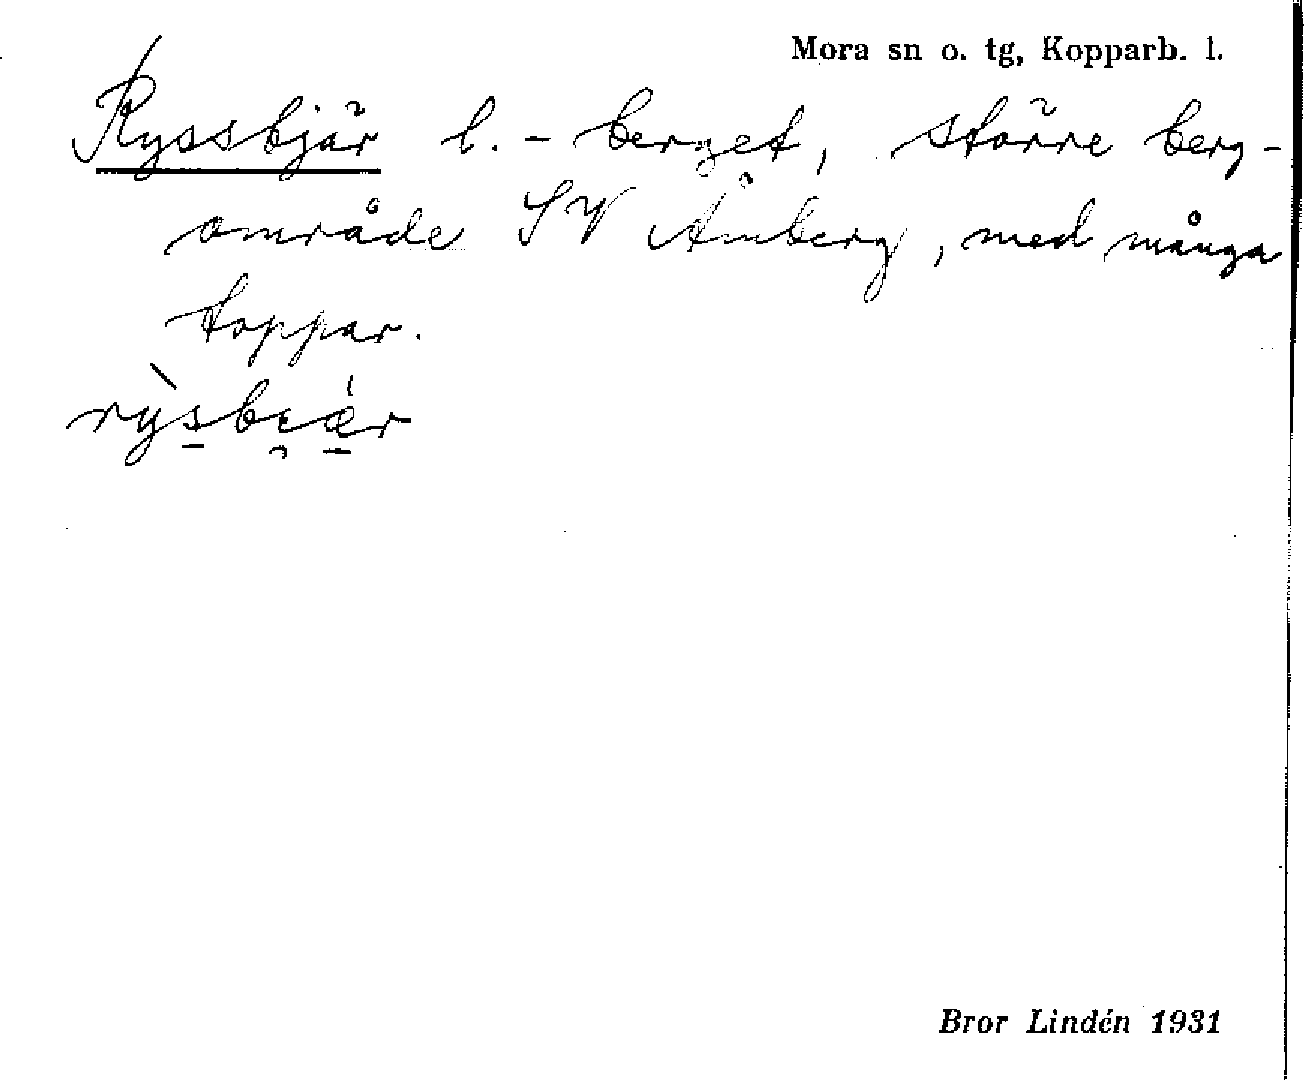 Mora sn o. tg, Kopparb. l.
Ryssbjär l. - berget, större berg-
område SV Åmberg, med många
toppar.
Bror Lindén 1931